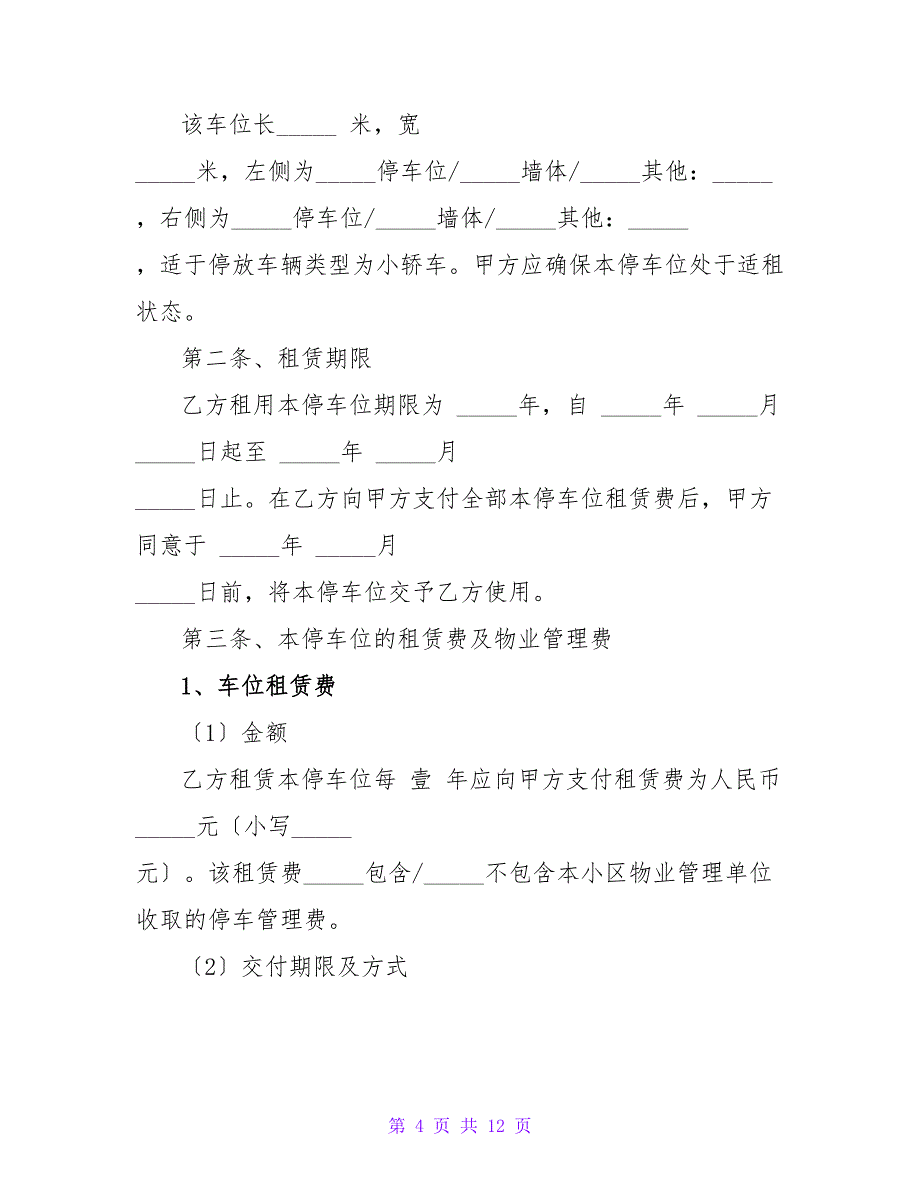 该车位长_____ 米，宽
_____米，左侧为_____停车位/_____墙体/_____其他：_____
，右侧为_____停车位/_____墙体/_____其他：_____
，适于停放车辆类型为小轿车。甲方应确保本停车位处于适租
状态。
第二条、租赁期限
乙方租用本停车位期限为 _____年，自 _____年 _____月
_____日起至 _____年 _____月
_____日止。在乙方向甲方支付全部本停车位租赁费后，甲方
同意于 _____年 _____月
_____日前，将本停车位交予乙方使用。
第三条、本停车位的租赁费及物业管理费
1、车位租赁费
〔1〕金额
乙方租赁本停车位每 壹 年应向甲方支付租赁费为人民币
_____元〔小写_____
元〕。该租赁费_____包含/_____不包含本小区物业管理单位
收取的停车管理费。
〔2〕交付期限及方式
第 4 页 共 12 页